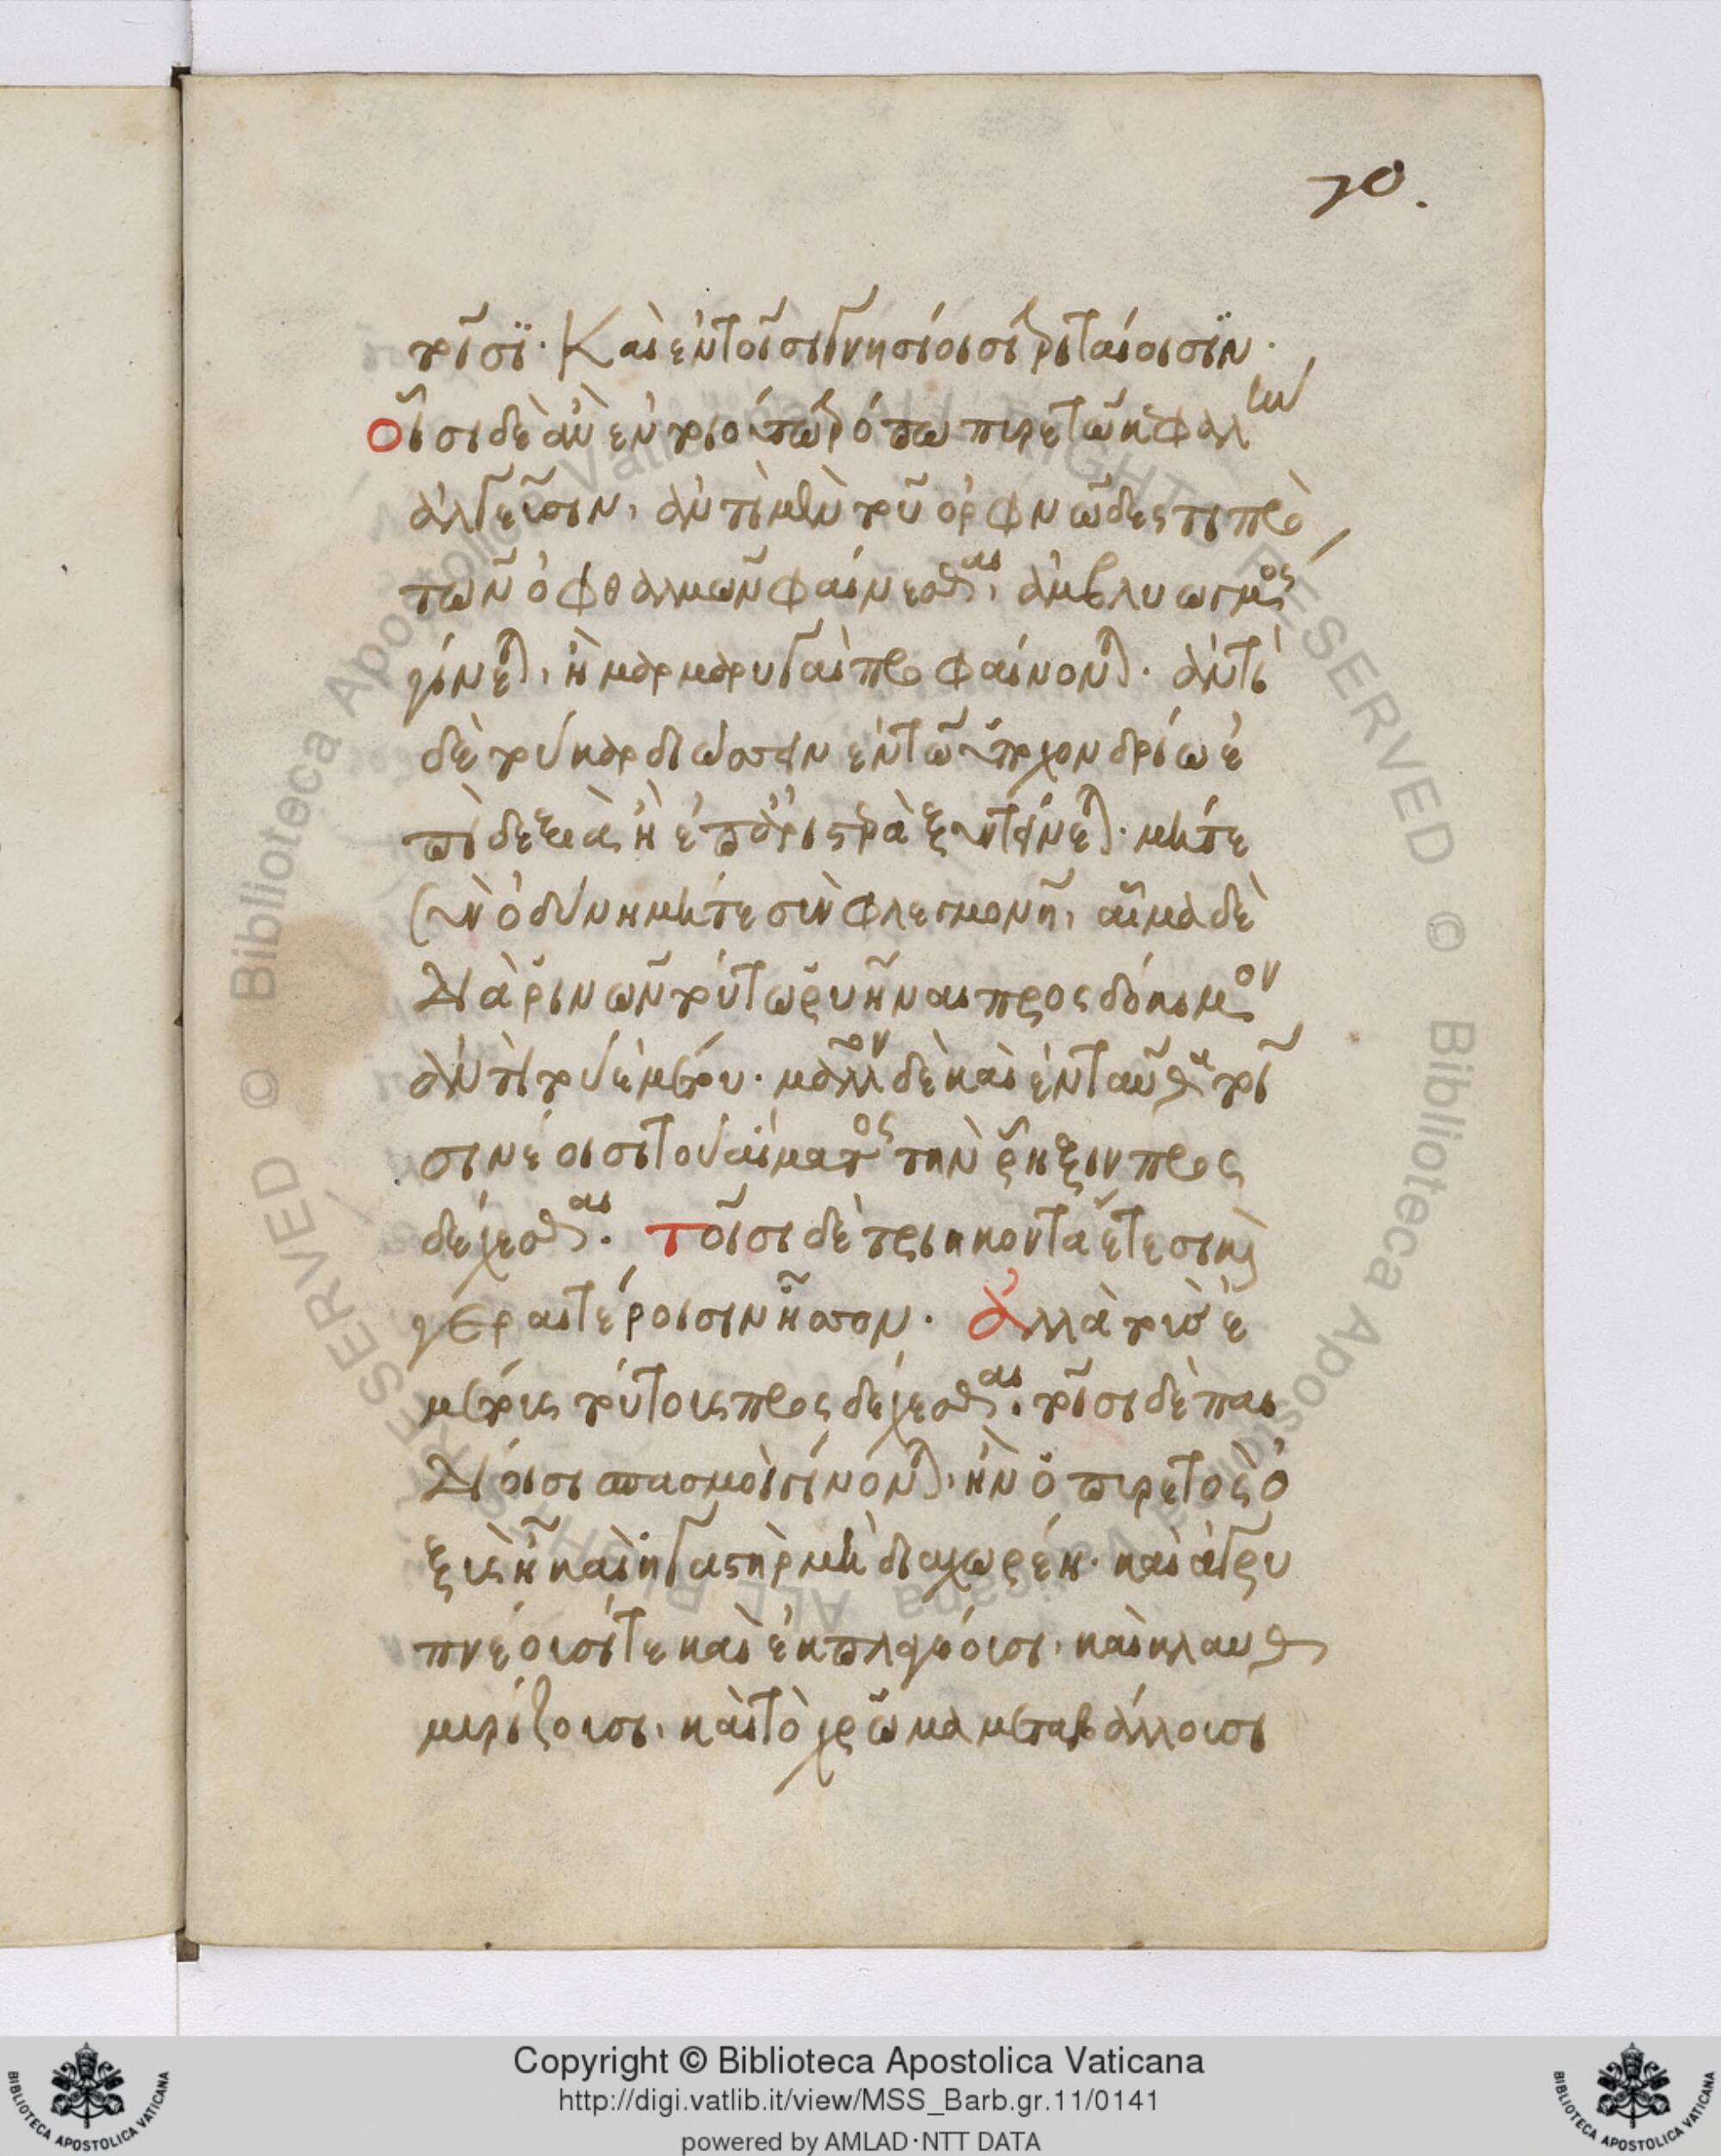 70.
τοῖσϊ· Καὶ ἐν τοῖσι γνησίοισι τριταίοισϊν·
οἷσι δὲ ἂν ἐν τοιούτω τρόπω πυρετῶ κεφαλὴν
ἀλγεῖσιν, ἀντὶ μὲν τοῦ ὀρφνῶδες τι πρὸ
τῶν ὀφθαλμῶν φαίνεσθαι, ἀμβλυωγμὸς
γίνεται, ἢ μαρμαρυγαὶ προφαίνονται· ἀντὶ
δὲ τοῦ καρδιώσσειν ἐν τῶ ὑποχονδρίω ἐ
πὶ δεξιὰ, ἢ ἐπ' ἀριστερὰ ξυντείνεται· μήτε
ξὺν ὀδύνη μήτε σὺν φλεγμονῆ, αἷμα δὲ
διὰ ῥινῶν τούτω ῥυῆναι προσδόκιμον
ἀντὶ τοῦ ἐμέτου· μᾶλλον δὲ καὶ ἐνταῦθα τοῖ
σι νέοισι τοῦ αἵματος τὴν ῥῆξιν προς
δέχεσθαι· τοῖσι δὲ τριηκονταέτεσι καὶ
γεραιτέροισιν ἧσσον· ἀλλὰ τοὺς ἐ
μέτους τούτοις προσδέχεσθαι· τοῖσι δὲ παι
δίοισι σπασμοὶ γίνονται, ἢν ὁ πυρετὸς ὀ
ξὺς ἦ καὶ ἡ γαστὴρ μὴ διαχωρέη· καὶ ἀγρυ
πνέοισί τε καὶ ἐκπλαγέοισι, καὶ κλαυθ
μυρίζοισι, καὶ τὸ χρῶμα μεταβάλλοισι
Copyright © Biblioteca Apostolica Vaticana
http://digi.vatlib.it/view/MSS_Barb.gr.11/0141
powered by AMLAD·NTT DATA